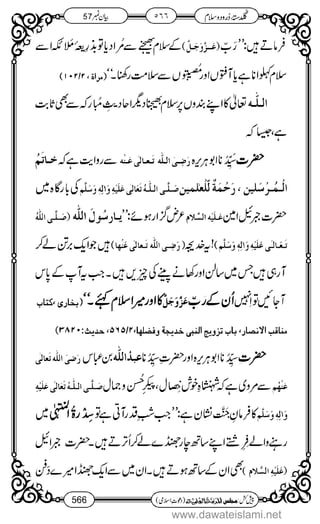 بیان نمبر57
٥٦٦
گلدستۂ درود و سلام
فرماتے ہیں:’’ربّ (عَزَّوَجَلَّ) کے سلام بھیجنے سے مُراد یا تو بذریعہ ملائکہ اسے
سلام کہلوانا ہے یا آفتوں اور مُصیبتوں سے سلامت رکھنا۔‘‘ (مراۃ، ۱۰۲/۲)
اللہ تعالٰی کا اپنے بندوں پر سلام بھیجنا دیگر احادیثِ مُبارکہ سے بھی ثابت
ہے، جیسا کہ
حضرت سَیِّدُنا ابوہریرہ رَضِیَ اللہُ تَعَالٰی عَنْہ سے روایت ہے کہ خَاتَمُ
الْمُرْسَلِیْن، رَحْمَۃٌ لِّلْعٰلَمِیْن صَلَّی اللہُ تَعَالٰی عَلَیْہِ وَاٰلِہٖ وَسَلَّمَ کی بارگاہ میں
حضرت جبرئیل امین عَلَیْہِ السَّلَام عرض گزار ہوئے:’’یارسولَ اللہ (صَلَّی اللہُ
تَعَالٰی عَلَیْہِ وَاٰلِہٖ وَسَلَّمَ)! یہ خدیجہ (رَضِیَ اللہُ تَعَالٰی عَنْہَا) ہیں جو ایک برتن لے کر
آ رہی ہیں جس میں سالن اور کھانے پینے کی چیزیں ہیں۔ جب یہ آپ کے پاس
آ جائیں تو انہیں اُن کے ربّ عَزَّوَجَلَّ کا اور میرا سلام کہئے۔‘‘ (بخاری ،کتاب
مناقب الانصار، باب تزویج النبی خدیجۃ وفضلہا،۵۶۵/۲، حدیث:۳۸۲۰)
حضرت سَیِّدُنا ابوہریرہ اور حضرتِ سَیِّدُنا عبداللہ بن عباس رَضِیَ اللہُ تَعَالٰی
عَنْہُم سے مروی ہے کہ شہنشاہِ خوش خِصال، پیکرِ حُسن و جمال صَلَّی اللہُ تَعَالٰی عَلَیْہِ
وَاٰلِہٖ وَسَلَّمَ کا فرمانِ جنّت نشان ہے:’’جب شبِ قدر آتی ہے تو سِدْرَۃُ الْمُنْتَہٰی میں
رہنے والے فرشتے اپنے ساتھ چار جھنڈے لے کر اُترتے ہیں۔ حضرت جبرائیل
(عَلَیْہِ السَّلَام) بھی ان کے ساتھ ہوتے ہیں۔ ان میں سے ایک جھنڈا میرے دَفن
566
www.dawateislami.net